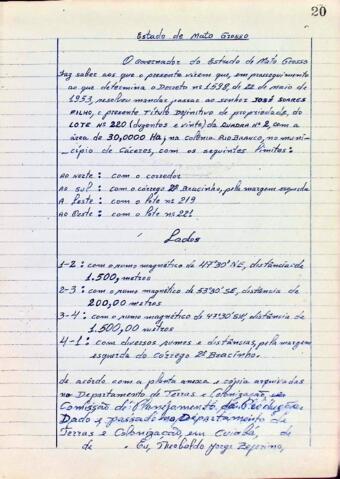 20
Estado de Mato Grosso
O Governador do Estado de Mato Grosso
faz saber aos que o presente virem que, em prosseguimento
ao que determina o Decreto nº 1598, de 22 de maio de
1953, resolveu mandar passar ao senhor JOSÉ SOARES
FILHO, o presente Título Definitivo de propriedade, do
LOTE Nº 220 (dusentos e vinte) da QUADRA Nº 2, com a
área de 30,0000 Ha, na colônia RIO BRANCO, no muni-
cípio de Cáceres, com os seguintes limites:
AO NORTE: com o corredor
AO SUL: com o córrego 2º Bracinho, pela margem esquerda
A Leste: com o lote nº 219
AO Oeste: com o lote nº 221
Lados
1-2: com o rumo magnético de 47º30' NE, distância de
1.500, metros
2-3: com o rumo magnético de 53º30' SE, distância de
200,00 metros
3-4: com o rumo magnético de 47º30' SW, distância de
1.500,00 metros
4-1: com diversos rumos e distâncias, pela margem
esquerda do córrego 2º Bracinho.
de acôrdo com a planta anexa e cópia arquivadas
no Departamento de Terras e Colonização, e
Comissão de Planejamento da Produção.
Dado e passado no Departamento de
Terras e Colonização, em Cuiabá, de
de . Eu, Theobaldo Jorge Zeferino,